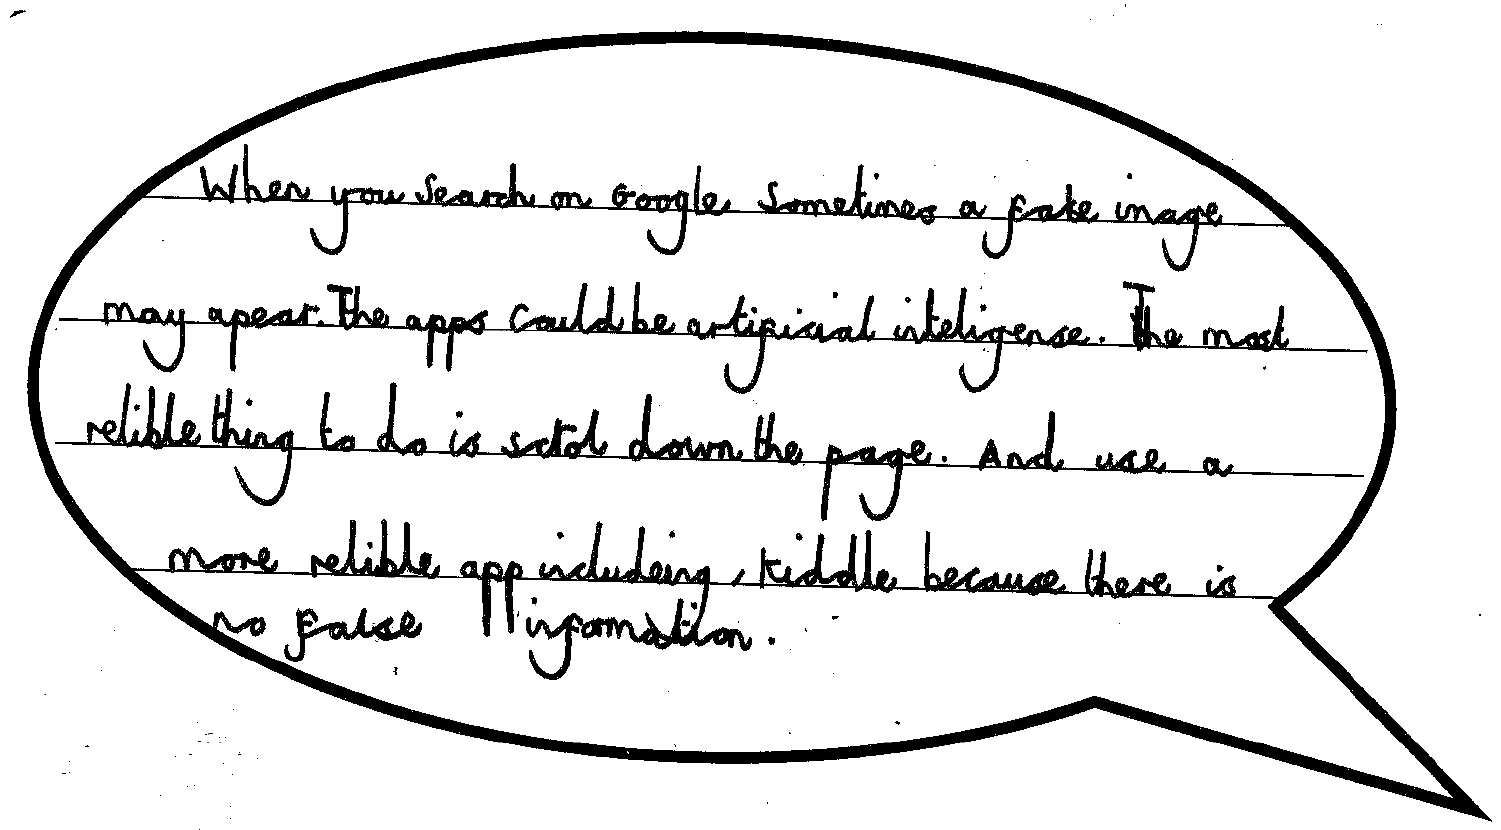 When you search on Google sometimes a fake image
may apear. The apps could be artificial inteligense. The most
relible thing to do is scrol down the page. And use a
more relible app includeing, Kiddle because there is
no false information.